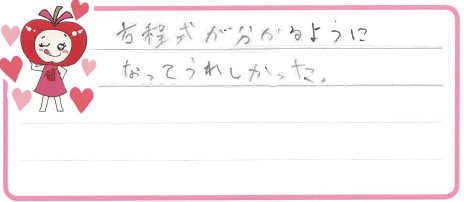 方程式が分かるように
なってうれしかった。